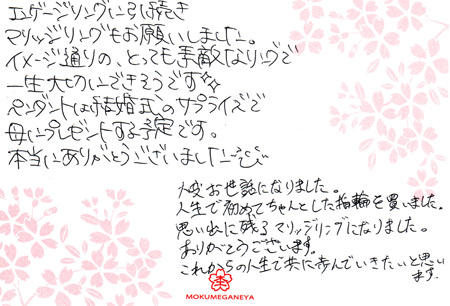 エンゲージリングに引き続き
マリッジリングもお願いしました。
イメージ通りの、とっても素敵なリングで
一生大切にできそうです✨
ペンダントは結婚式のサプライズで
母にプレゼントする予定です。
本当にありがとうございました
大変お世話になりました。
人生で初めてちゃんとした指輪を買いました。
思い出に残るマリッジリングになりました。
ありがとうございます。
これからの人生で共に歩んでいきたいと思い
ます。
MOKUMEGANEYA